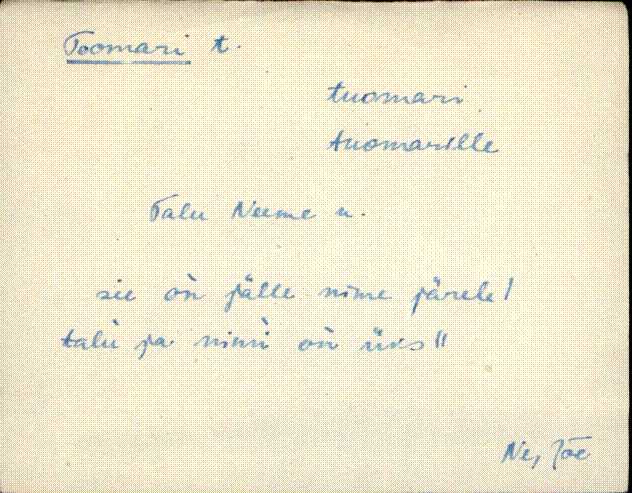 Toomari t.
tuomari
tuomarille
Talu Neeme u.
sie òn jälle nime järele!
talù ja nimì òn üks"
Ne, Jõe